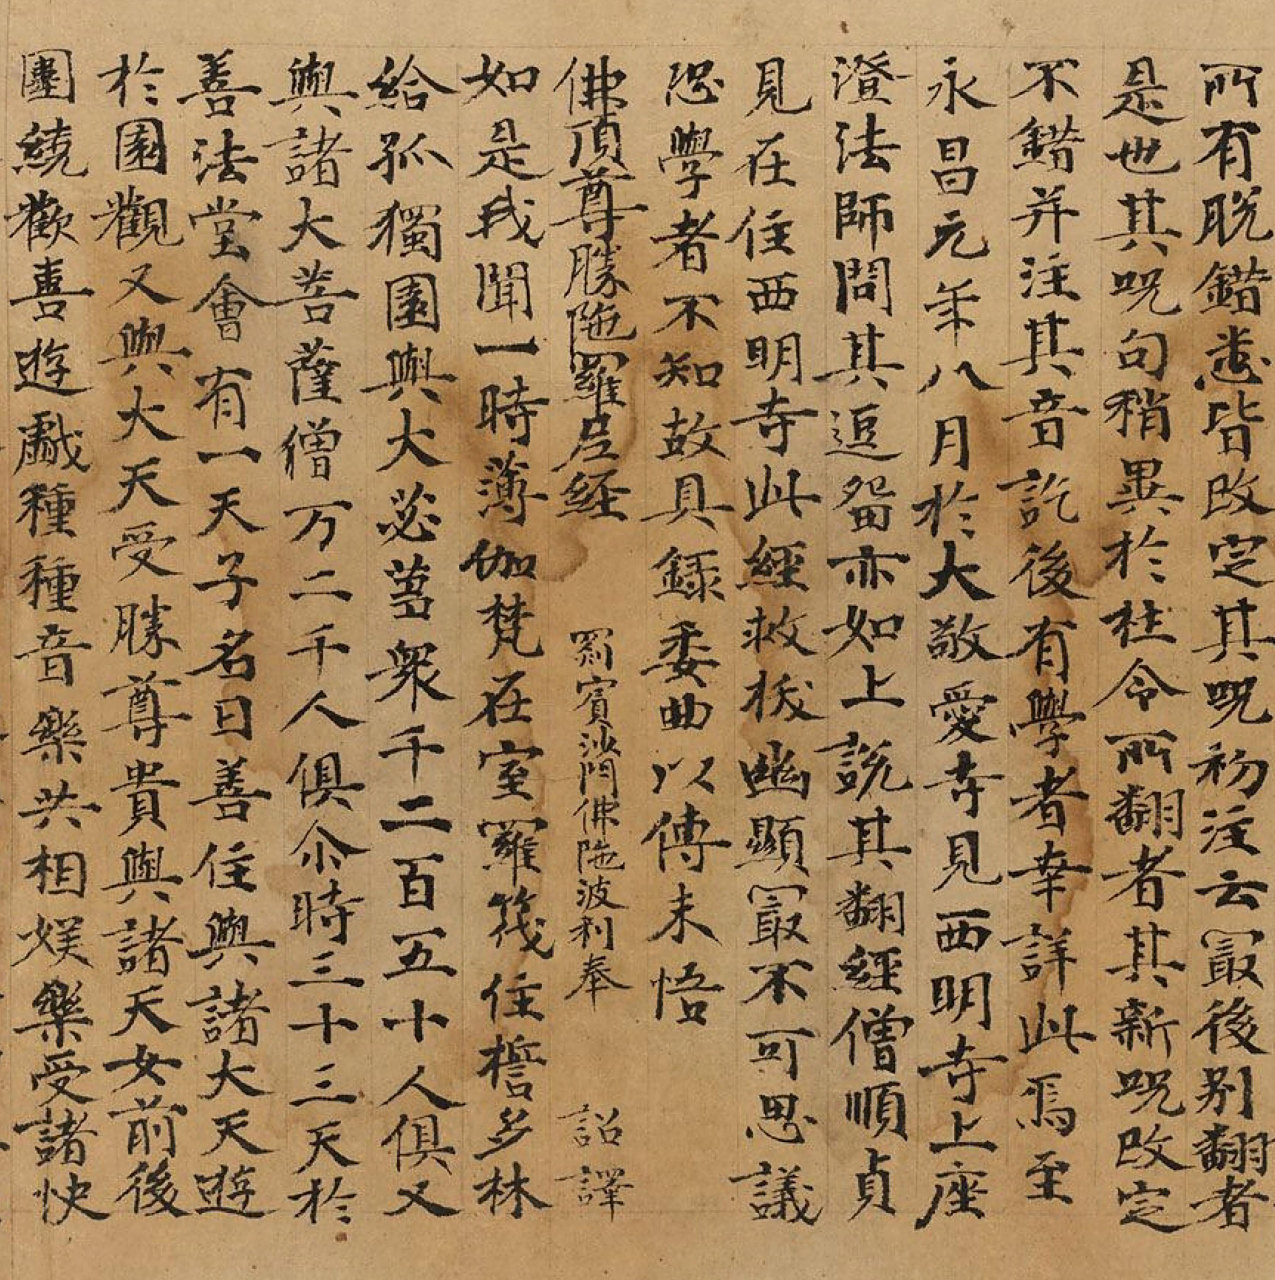 所有脱錯悉皆改定其呪初注云冣後別翻者
是也其呪句稍異於杜令所翻者其新呪改定
不錯并注其音訖後有學者幸詳此焉至
永昌元年八月於大敬愛寺見西明寺上座
澄法師問其逗留亦如上說其翻經僧順貞
見在住西明寺此經救拔幽顯冣不可思議
恐學者不知故具録委曲以傳未悟
佛頂尊勝陁羅尼経 罽賓沙門佛陁波利奉 詔譯
如是我聞一時薄伽梵在室羅筏住誓多林
給孤獨園與大苾蒭衆千二百五十人俱又
與諸大菩薩僧万二千人俱尒時三十三天於
善法堂會有一天子名曰善住與諸大天遊
於園觀又與大天受勝尊貴與諸天女前後
圍繞歡喜遊戱種種音樂共相娱樂受諸快